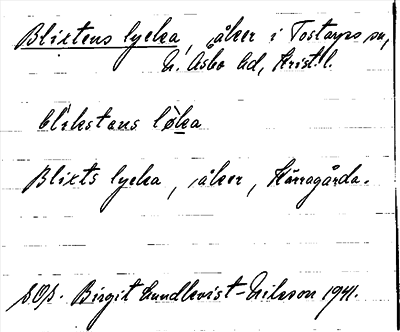 Blixtens lycka, åker i Tostarps sn,
N. Åsbo hd, Krist. l.
blìkstans lø̀ka
Blixts lycka, åker, Kärragårda.
SOS. Birgit Lundkvist-Nilsson 1941.